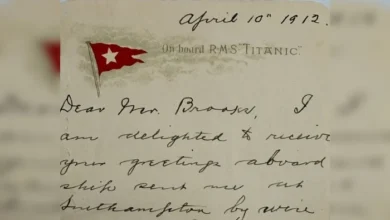 April 10th 1912.
On board R.M.S. "TITANIC."
Dear Mr. Brooks, I
am delighted to receive
your greetings aboard
ship sent me at
Southampton by wire